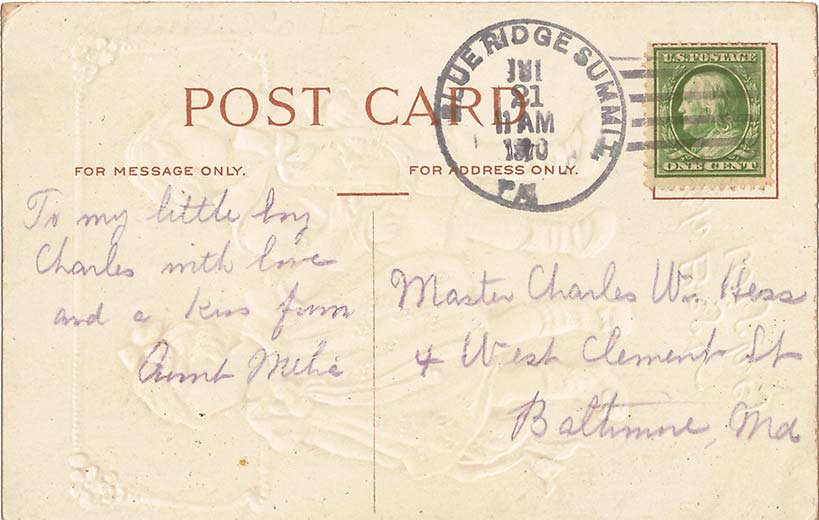 POST CARD
FOR MESSAGE ONLY.
FOR ADDRESS ONLY.
BLUE RIDGE SUMMIT
JUL
21
11 AM
PA
U.S. POSTAGE
ONE CENT
To my little boy
Charles with love
and a Kiss from
Aunt
Master Charles W. Hess
4 West Clement St
Baltimore, Md